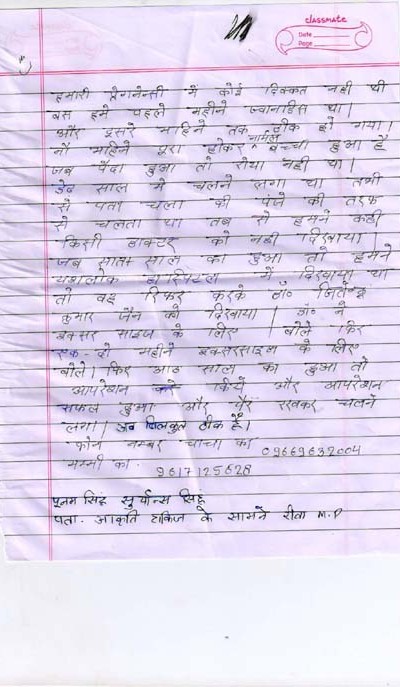 classmate
Date
Page
हमारी प्रेगनेन्सी में कोई दिक्कत नही थी
बस हमे पहले महीने ज्वानहिस था।
और दूसरे महिने तक ठीक हो गया।
नौ महिने पूरा होकर नार्मल बच्चा हुआ है
जब पैदा हुआ तो रोया नही था।
डेढ साल मे चलने लगा था तभी
से पता चला की पंजे की तरफ
से चलता था तब से हमने कही
किसी डाक्टर को नही दिखाया।
जब सात साल का हुआ तो हमने
यशलोक हास्पिटल में दिखाया था
तो वह रिफर करके डॉ० जितेन्द्र
कुमार जैन को दिखाया। डॉ० ने
इक्सर साइज के लिए बोले फिर
एक-दो महीने इक्सरसाइज के लिए
बोले। फिर आठ साल का हुआ तो
आपरेशन किये और आपरेशन
सफल हुआ और पैर रखकर चलने
लगा। अब बिलकुल ठीक है।
फोन नम्बर चाचा का 09669632004
मम्मी का. 9617125628
पूनम सिंह सुर्यान्स सिंह
पता. आकृति टाकिज के सामने रीवा M.P